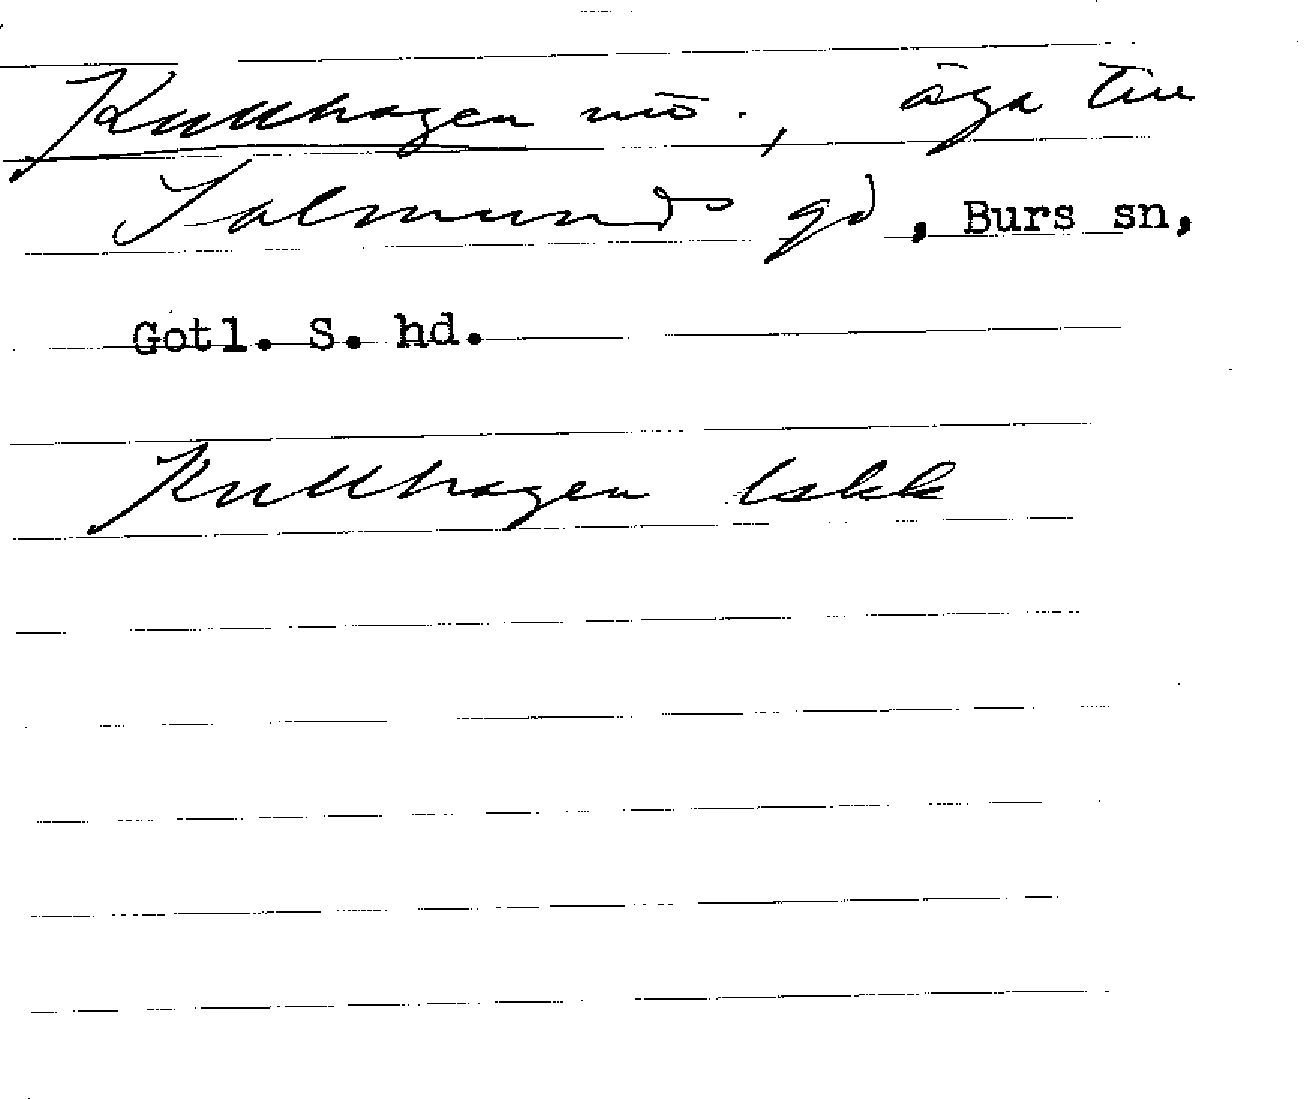 Kullhagen, äga till
Salmunds gd, Burs sn,
Gotl. S. hd.
Kullhagen lskk